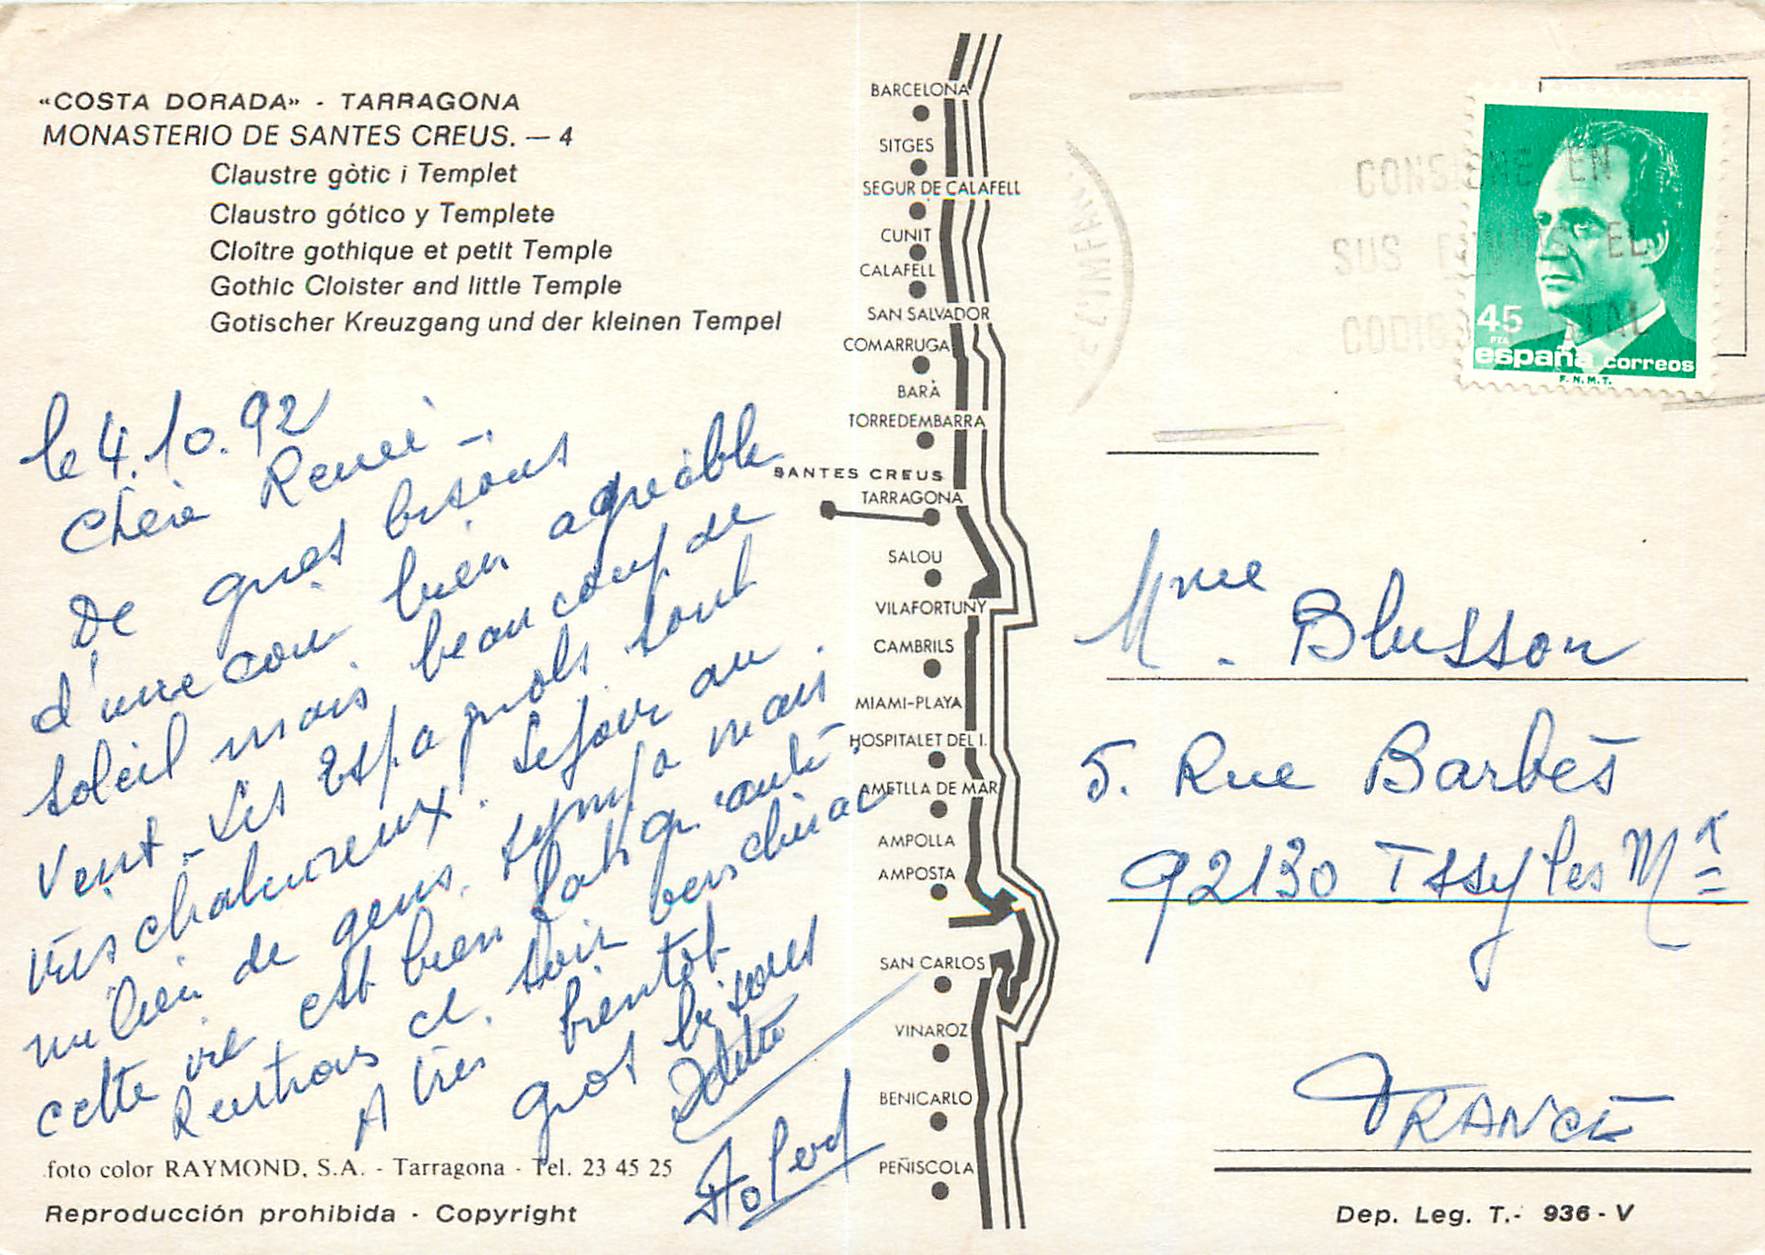 «COSTA DORADA» - TARRAGONA
MONASTERIO DE SANTES CREUS. — 4
Claustre gòtic i Templet
Claustro gótico y Templete
Cloître gothique et petit Temple
Gothic Cloister and little Temple
Gotischer Kreuzgang und der kleinen Tempel
le 4.10.92
Chère Renée -
De gros bisous
d'une coin bien agréable
soleil mais beaucoup de
vent - Les Espagnols sont
très chaleureux. Séjour au
milieu de gens sympa mais
cette vie est bien
Rentrons ce soir vers
A très bientôt
gros bisous
Odette
foto color RAYMOND, S.A. - Tarragona - Tel. 23 45 25
Reproducción prohibida - Copyright
BARCELONA
SITGES
SEGUR DE CALAFELL
CUNIT
CALAFELL
SAN SALVADOR
COMARRUGA
BARÀ
TORREDEMBARRA
SANTES CREUS
TARRAGONA
SALOU
VILAFORTUNY
CAMBRILS
MIAMI-PLAYA
HOSPITALET DEL I.
AMETLLA DE MAR
AMPOLLA
AMPOSTA
SAN CARLOS
VINAROZ
BENICARLO
PEÑISCOLA
CONSIGNE EN
SUS ENVIOS EL
CODIGO POSTAL
45
PTA
españa correos
F.N.M.T.
Mme. Blusson
5. Rue Barbès
92130 Issy les Mx
FRANCE
Dep. Leg. T.- 936 - V